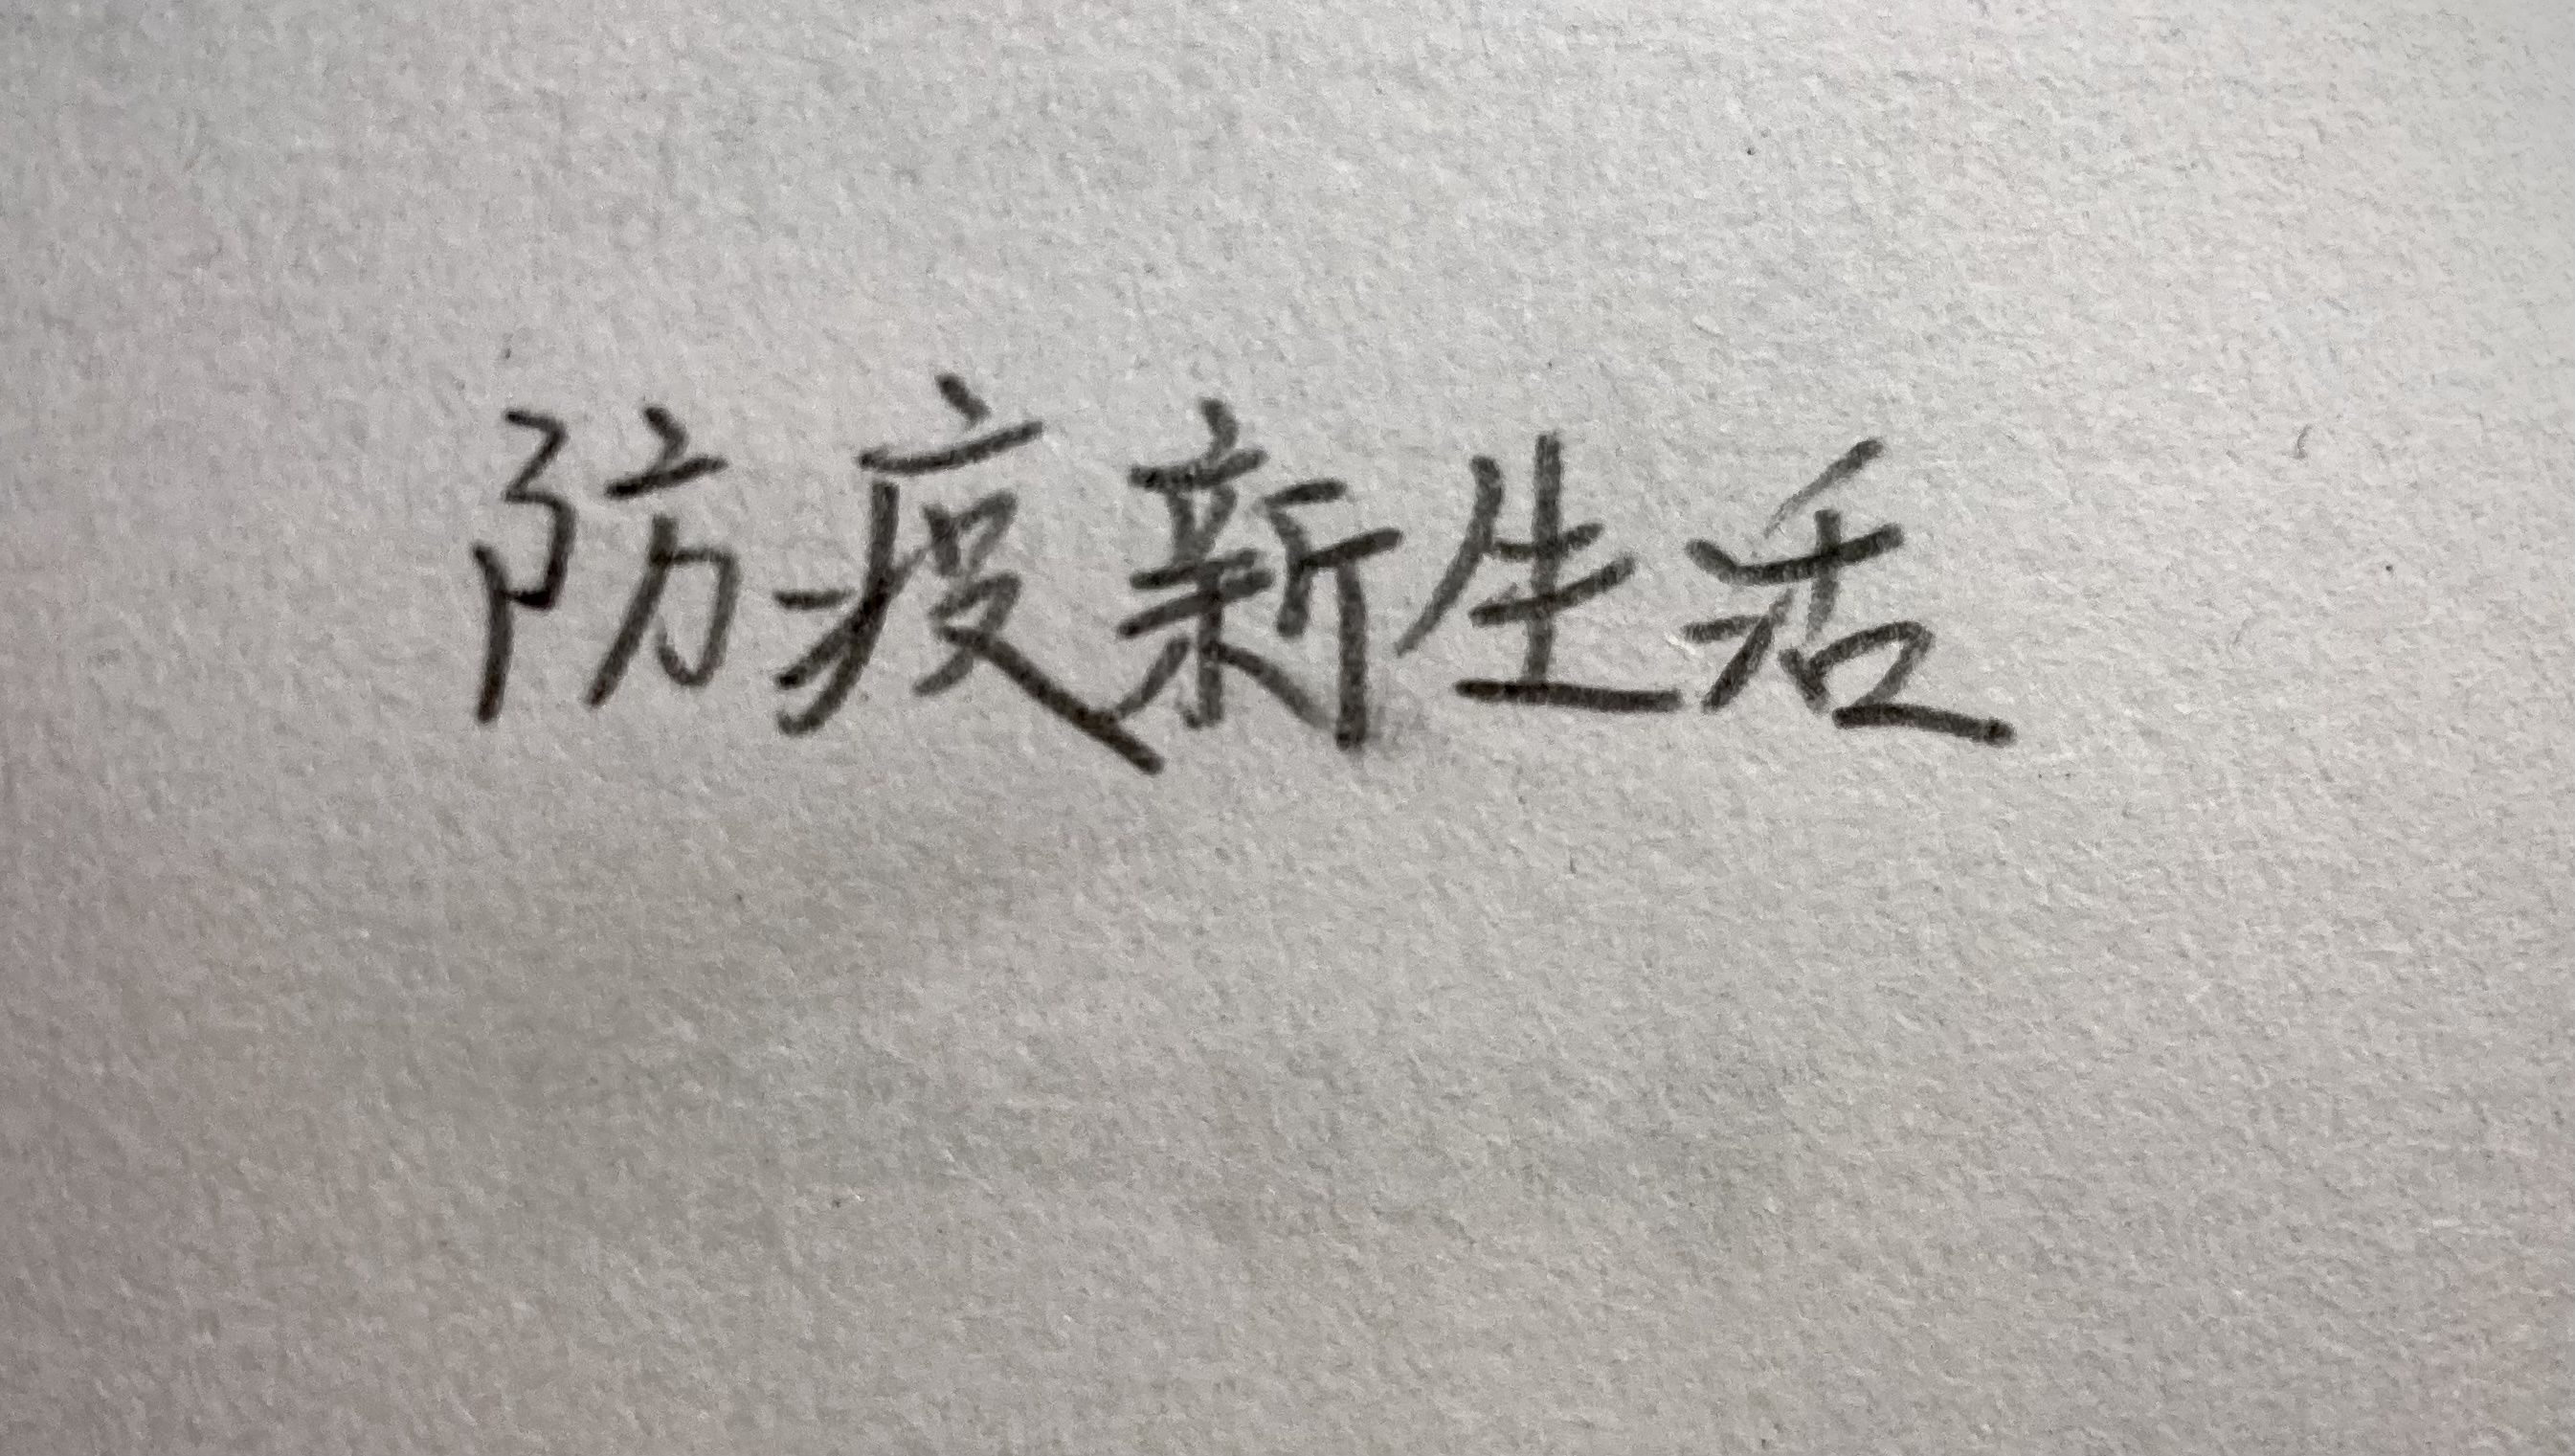 防疫新生活